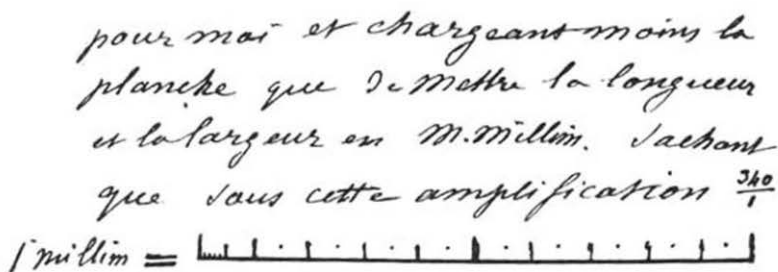 pour moi et chargeant moins la
planche que de mettre la longueur
et la largeur en M.millim. Sachant
que sous cette amplification 340/1
1 millim =